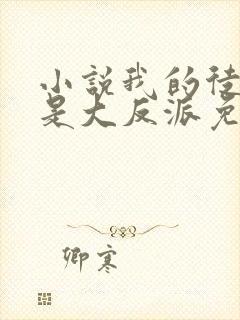 小說我的徒
是大反派免
卿寒